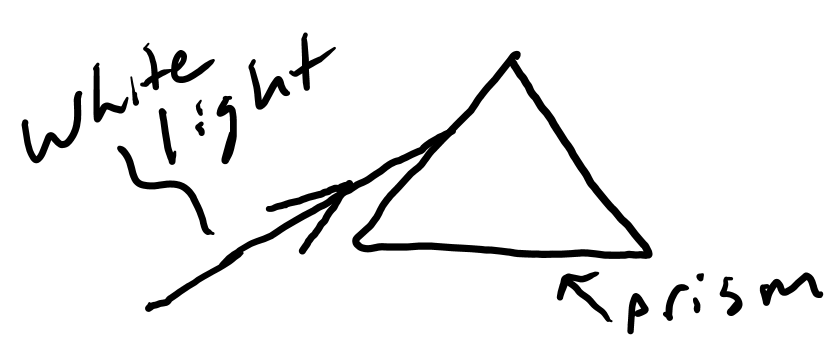 white
light
prism